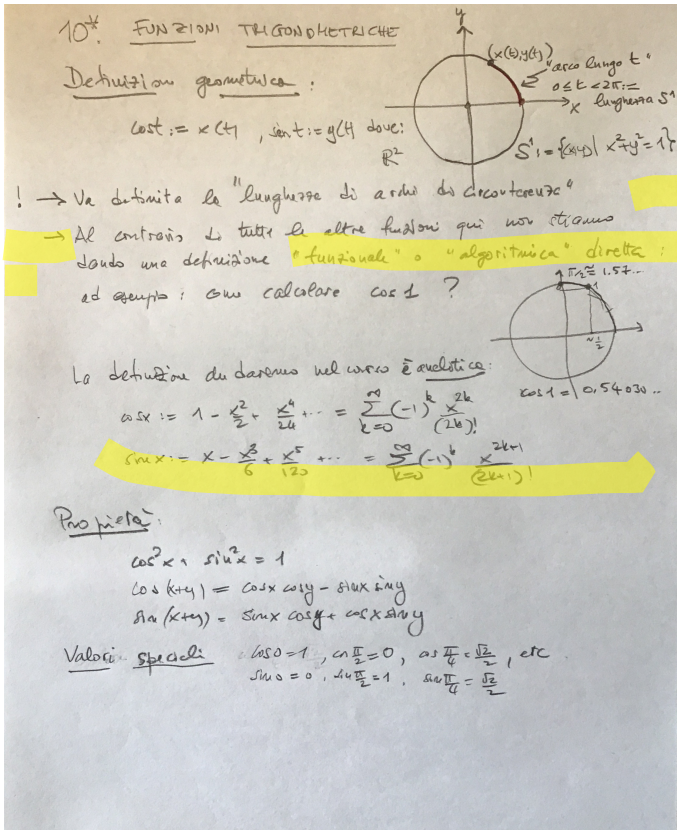 10*. FUNZIONI TRIGONOMETRICHE
y
(x(t),y(t))
"arco lungo t"
0≤t<2π:=
x lunghezza S¹
Definizion geometrica:
cost := x(t), sint := y(t) dove:
R²
S¹:={(x,y)| x²+y²=1}
! → Va definita la "lunghezza di archi di circonferenza"
→ Al contrario di tutte le altre funzioni qui non stiamo
dando una definizione "funzionale" o "algoritmica" diretta:
ad esempio: come calcolare cos 1 ?
π/2 ≈ 1.57...
1
~1/2
cos 1 = 0,54030..
La definizione che daremo nel corso è analitica:
cosx := 1 - x²/2 + x⁴/24 + ... = ∑_{k=0}^{∞} (-1)^k x^{2k}/(2k)!
sinx := x - x³/6 + x⁵/120 + ... = ∑_{k=0}^{∞} (-1)^k x^{2k+1}/(2k+1)!
Proprietà:
cos²x + sin²x = 1
cos(x+y) = cosx cosy - sinx siny
sin(x+y) = sinx cosy + cosx siny
Valori speciali cos0=1, cos π/2=0, cos π/4=√2/2, etc.
sin0=0, sin π/2=1, sin π/4=√2/2